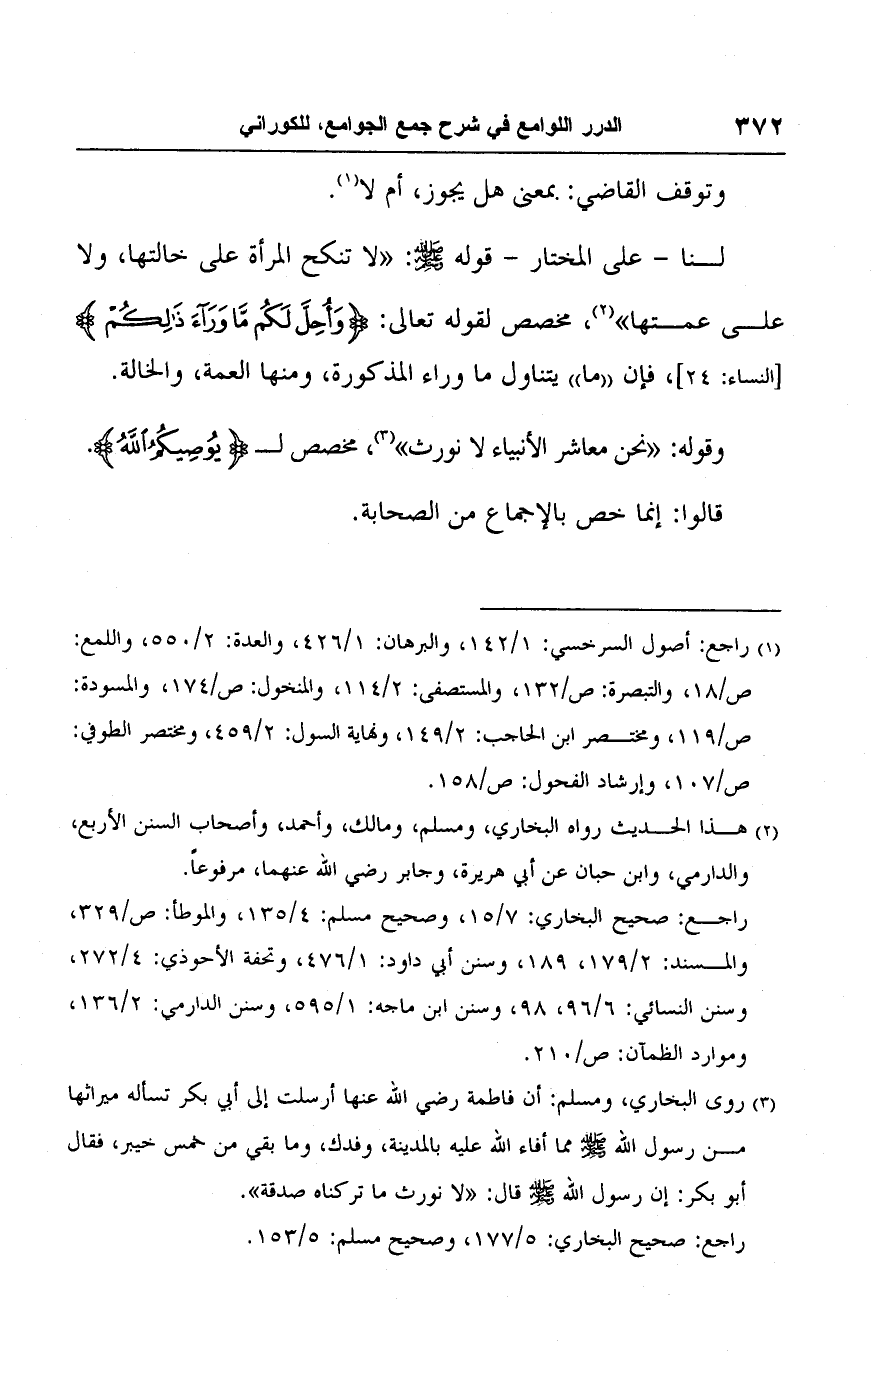 ٣٧٢ الدرر اللوامع في شرح جمع الجوامع، للكوراني
وتوقف القاضي: بمعنى هل يجوز، أم لا(١).
لـــنا - على المختار - قوله ﷺ: «لا تنكح المرأة على خالتها، ولا
علـــى عمـــتها»(٢)، مخصص لقوله تعالى: ﴿وَأُحِلَّ لَكُم مَّا وَرَآءَ ذَٰلِكُمْ﴾
[النساء: ٢٤]، فإن «ما» يتناول ما وراء المذكورة، ومنها العمة، والخالة.
وقوله: «نحن معاشر الأنبياء لا نورث»(٣)، مخصص لـــ ﴿يُوصِيكُمُ ٱللَّهُ﴾.
قالوا: إنما خص بالإجماع من الصحابة.
(١) راجع: أصول السرخسي: ١٤٢/١، والبرهان: ٤٢٦/١، والعدة: ٥٥٠/٢، واللمع:
ص/١٨، والتبصرة: ص/١٣٢، والمستصفى: ١١٤/٢، والمنخول: ص/١٧٤، والمسودة:
ص/١١٩، ومختـــصر ابن الحاجب: ١٤٩/٢، ونهاية السول: ٤٥٩/٢، ومختصر الطوفي:
ص/١٠٧، وإرشاد الفحول: ص/١٥٨.
(٢) هـــذا الحـــديث رواه البخاري، ومسلم، ومالك، وأحمد، وأصحاب السنن الأربع،
والدارمي، وابن حبان عن أبي هريرة، وجابر رضي الله عنهما، مرفوعاً.
راجـــع: صحيح البخاري: ١٥/٧، وصحيح مسلم: ١٣٥/٤، والموطأ: ص/٣٢٩،
والمـــسند: ١٧٩/٢، ١٨٩، وسنن أبي داود: ٤٧٦/١، وتحفة الأحوذي: ٢٧٢/٤،
وسنن النسائي: ٩٦/٦، ٩٨، وسنن ابن ماجه: ٥٩٥/١، وسنن الدارمي: ١٣٦/٢،
وموارد الظمآن: ص/٢١٠.
(٣) روى البخاري، ومسلم: أن فاطمة رضي الله عنها أرسلت إلى أبي بكر تسأله ميراثها
مـــن رسول الله ﷺ مما أفاء الله عليه بالمدينة، وفدك، وما بقي من خمس خيبر، فقال
أبو بكر: إن رسول الله ﷺ قال: «لا نورث ما تركناه صدقة».
راجع: صحيح البخاري: ١٧٧/٥، وصحيح مسلم: ١٥٣/٥.